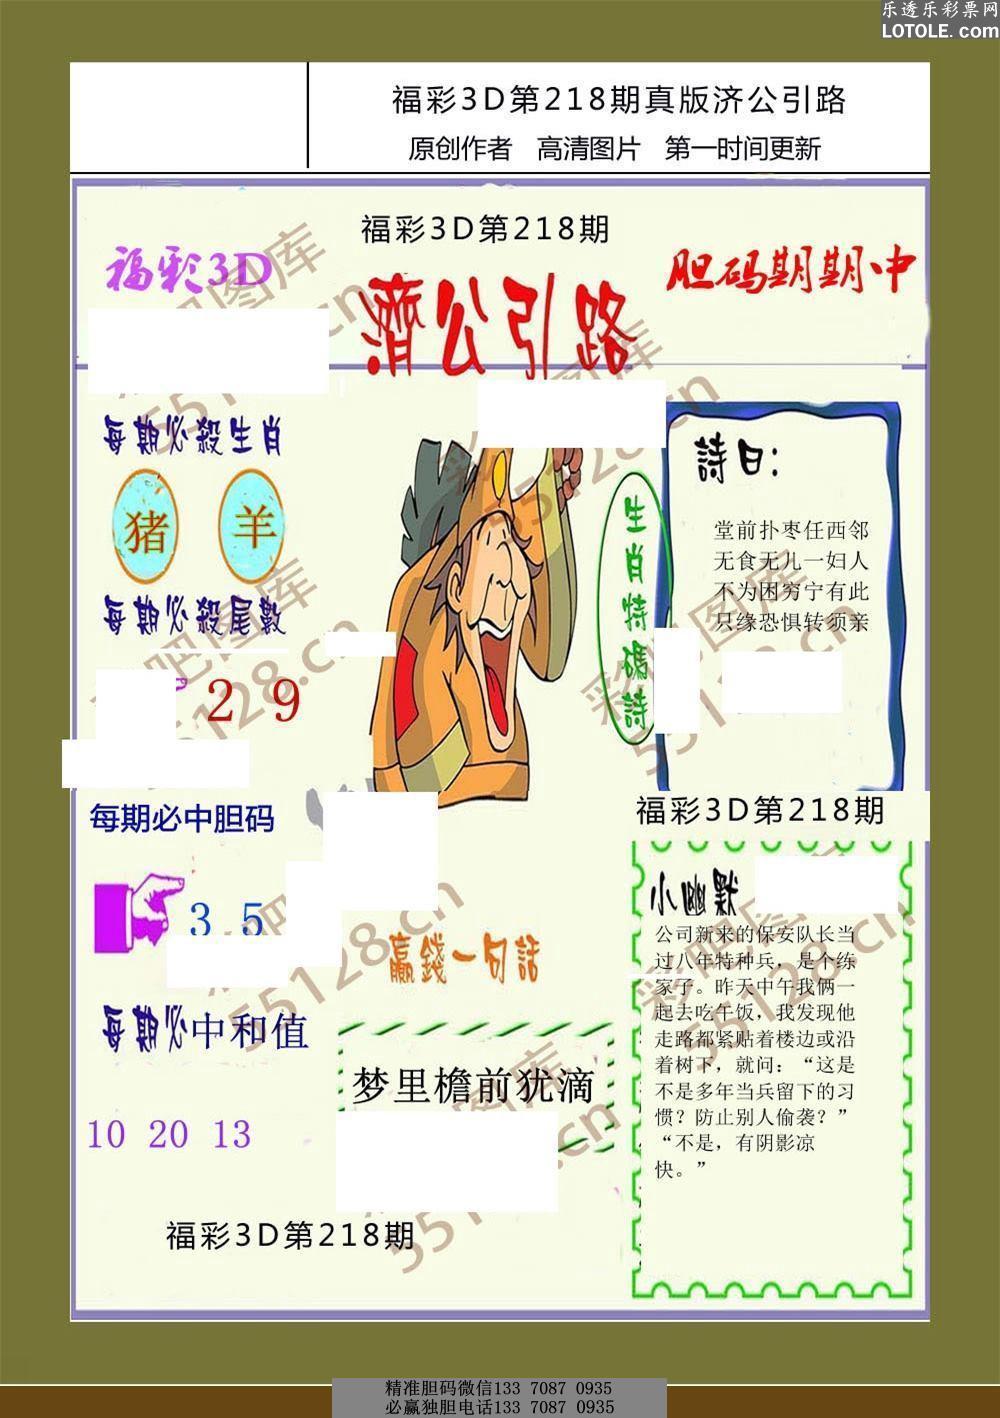 乐透乐彩票网
LOTOLE. com
福彩3D第218期真版济公引路
原创作者 高清图片 第一时间更新
福彩3D第218期
福彩3D
胆码期期中
濟公引路
每期必殺生肖
猪 羊
每期必殺尾數
2 9
每期必中胆码
3 5
每期必中和值
10 20 13
生肖特碼詩
詩曰：
堂前扑枣任西邻
无食无儿一妇人
不为困穷宁有此
只缘恐惧转须亲
福彩3D第218期
小幽默
公司新来的保安队长当
过八年特种兵，是个练
家子。昨天中午我俩一
起去吃午饭，我发现他
走路都紧贴着楼边或沿
着树下，就问：“这是
不是多年当兵留下的习
惯？防止别人偷袭？”
“不是，有阴影凉
快。”
贏錢一句話
梦里檐前犹滴
福彩3D第218期
彩吧图库
55128.cn
精准胆码微信133 7087 0935
必赢独胆电话133 7087 0935